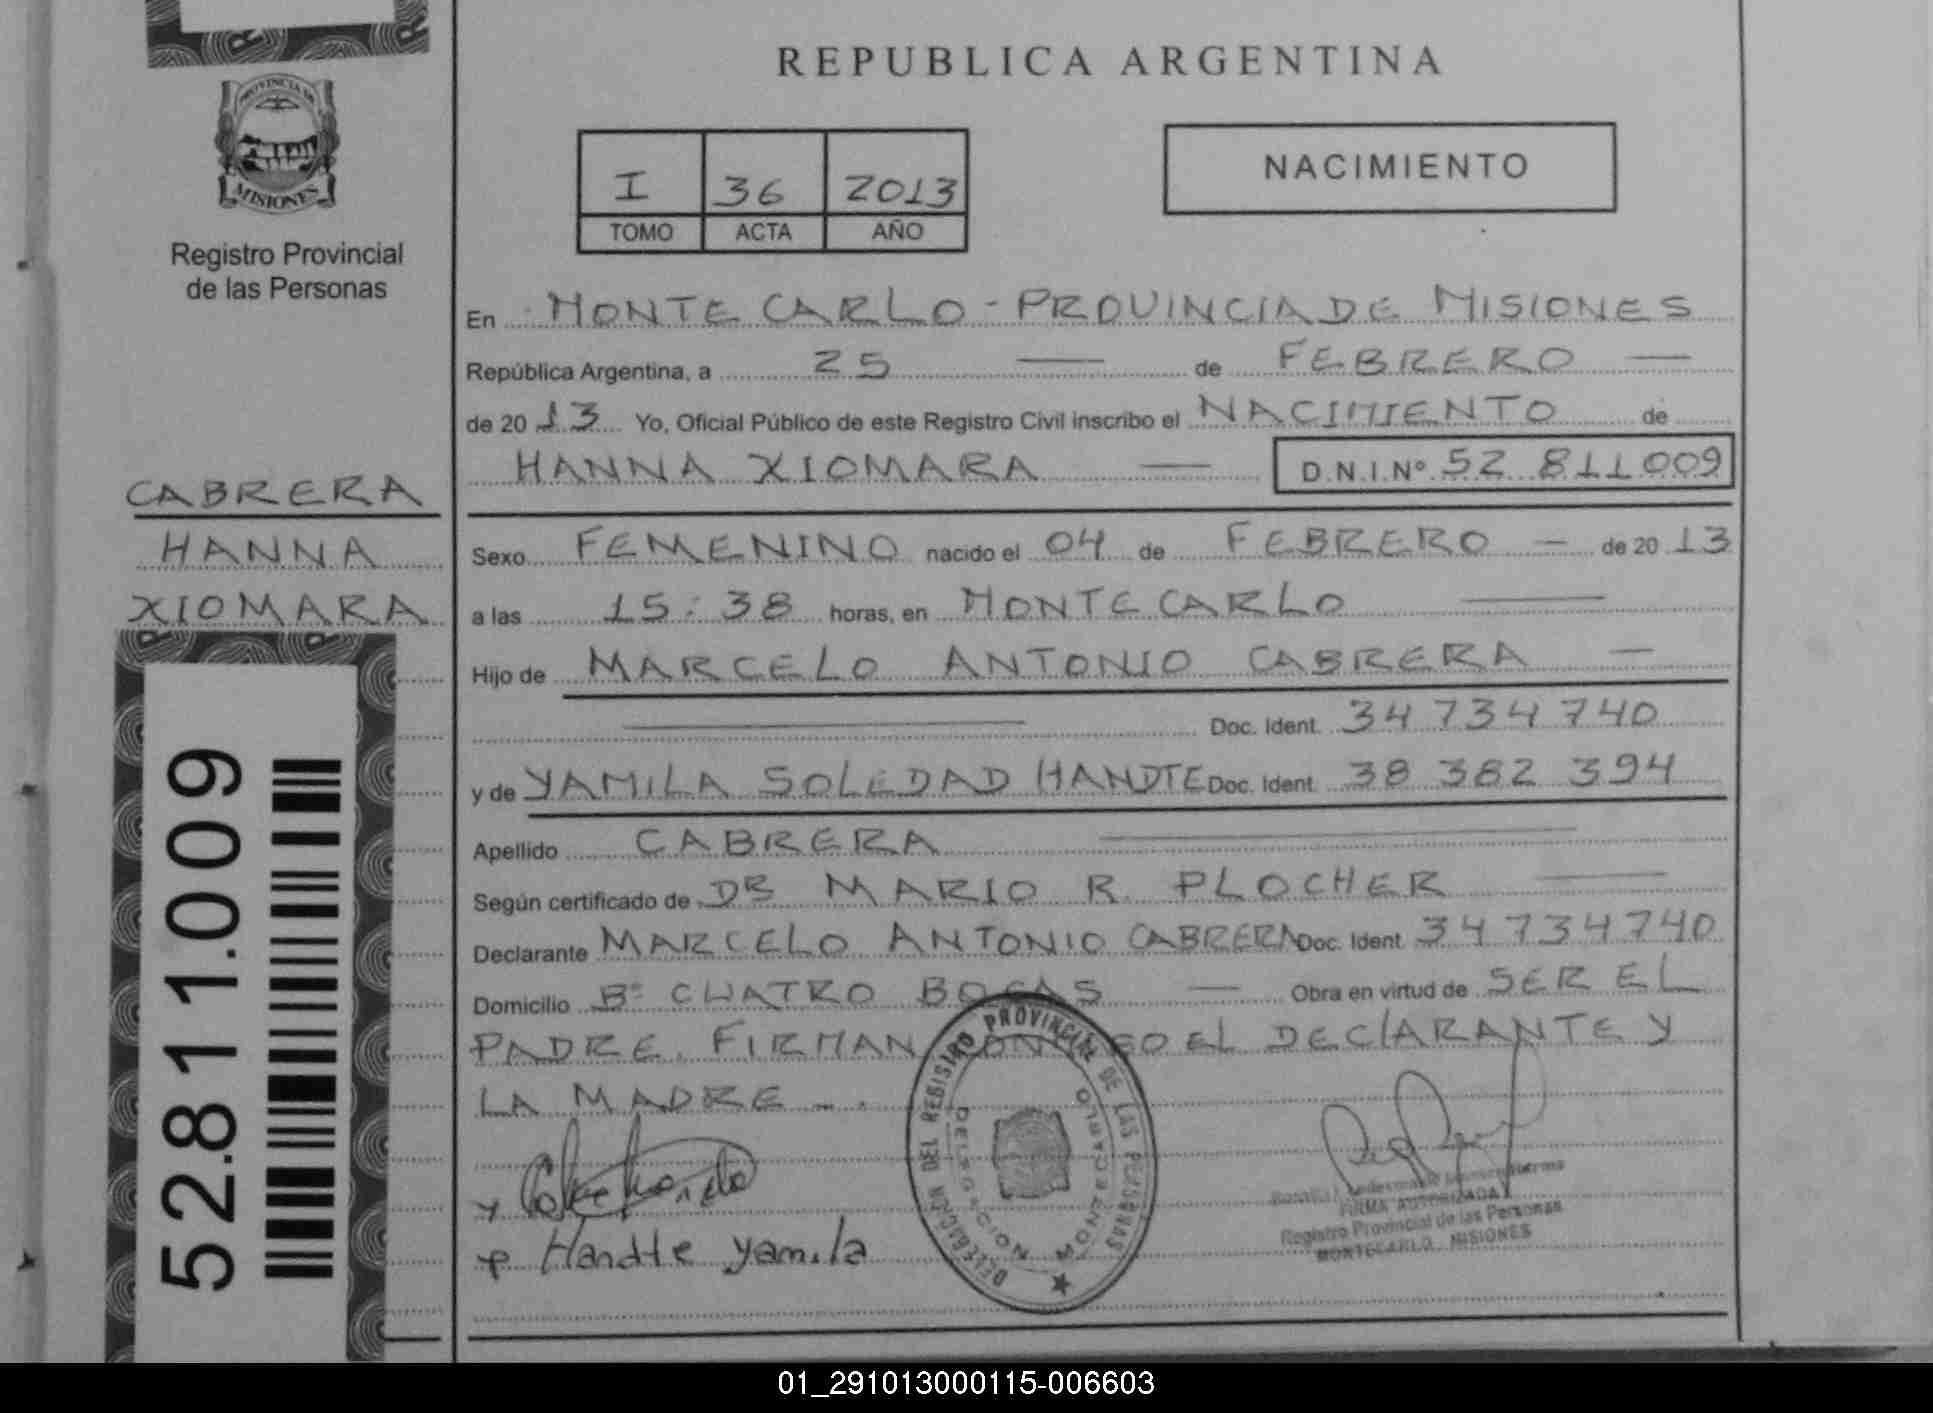 REPUBLICA ARGENTINA
PROVINCIA DE
MISIONES
Registro Provincial
de las Personas
I 36 2013
TOMO ACTA AÑO
NACIMIENTO
En MONTECARLO - PROVINCIA DE MISIONES
República Argentina, a 25 de FEBRERO
de 20 13 Yo, Oficial Público de este Registro Civil inscribo el NACIMIENTO de
HANNA XIOMARA D.N.I.Nº 52 811009
CABRERA
HANNA
XIOMARA
52.811.009
Sexo FEMENINO nacido el 04 de FEBRERO de 20 13
a las 15:38 horas, en MONTECARLO
Hijo de MARCELO ANTONIO CABRERA
Doc. Ident. 34 734 740
y de YAMILA SOLEDAD HANDTE Doc. Ident. 38 382 394
Apellido CABRERA
Según certificado de DR MARIO R. PLOCHER
Declarante MARCELO ANTONIO CABRERA Doc. Ident. 34 734 740
Domicilio Bº CUATRO BOCAS Obra en virtud de SER EL
PADRE. FIRMAN CONMIGO EL DECLARANTE Y
LA MADRE
Handte Yamila
DELEGACION DEL REGISTRO PROVINCIAL DE LAS PERSONAS
DELEGACION MONTECARLO
FIRMA AUTORIZADA
Registro Provincial de las Personas
MONTECARLO MISIONES
01_291013000115-006603